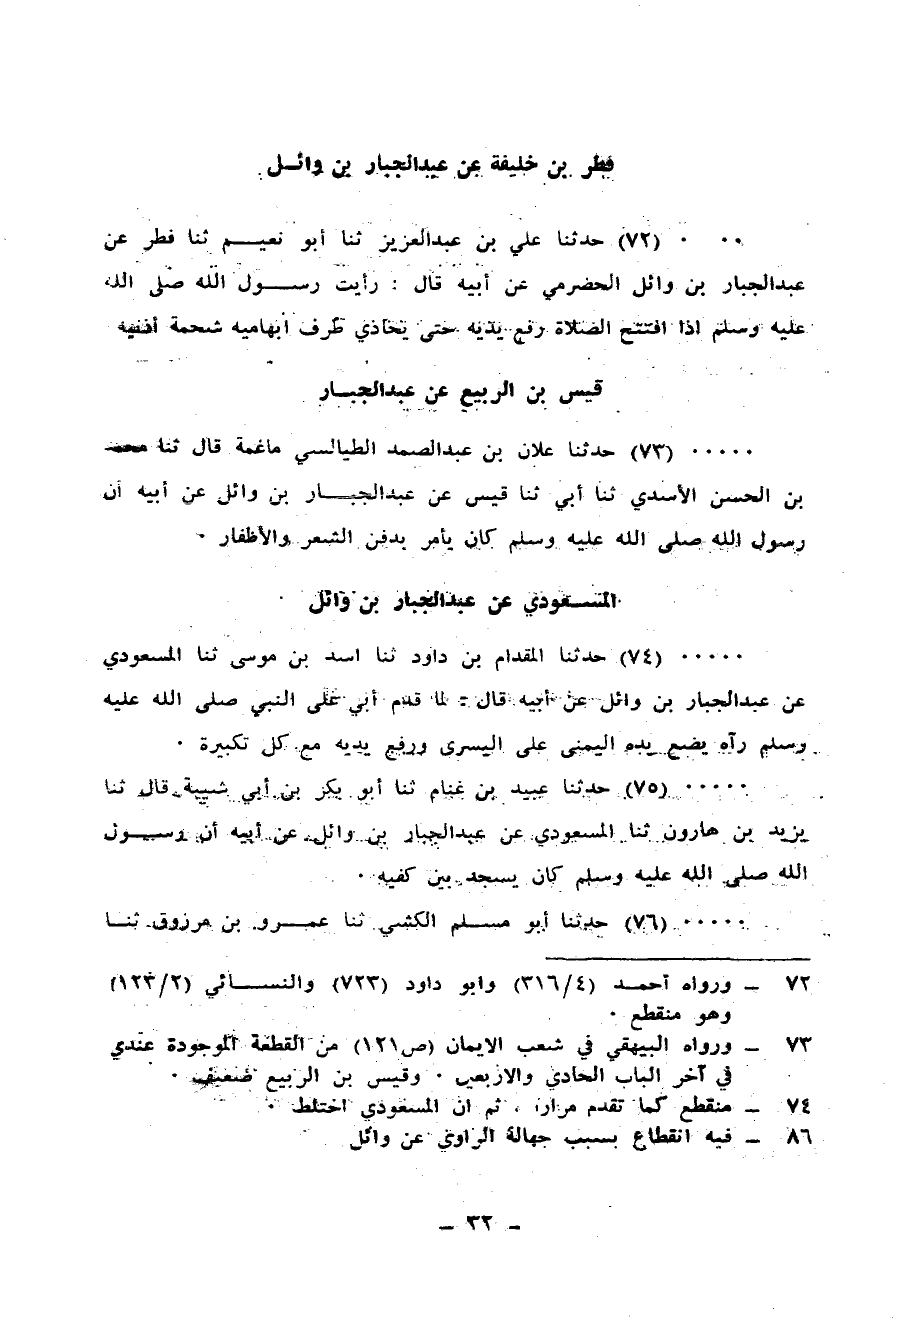 فطر بن خليفة عن عبدالجبار بن وائــل
٠٠٠ (٧٢) حدثنا علي بن عبدالعزيز ثنا أبو نعيــم ثنا فطر عن
عبدالجبار بن وائل الحضرمي عن أبيه قال : رأيت رســول الله صلى الله
عليه وسلم اذا افتتح الصلاة رفع يديه حتى يحاذي طرف ابهاميه شحمة أذنيه
قيس بن الربيع عن عبدالجبــار
٠٠٠٠٠ (٧٣) حدثنا علان بن عبدالصمد الطيالسي ماغمة قال ثنا محمد
بن الحسن الأسدي ثنا أبي ثنا قيس عن عبدالجبــار بن وائل عن أبيه أن
رسول الله صلى الله عليه وسلم كان يأمر بدفن الشعر والأظفار ٠
المســعودي عن عبدالجبار بن وائل
٠٠٠٠٠ (٧٤) حدثنا المقدام بن داود ثنا اسد بن موسى ثنا المسعودي
عن عبدالجبار بن وائل عن أبيه قال : لما قدم أبي على النبي صلى الله عليه
وسلم رآه يضع يده اليمنى على اليسرى ورفع يديه مع كل تكبيرة ٠
٠٠٠٠٠ (٧٥) حدثنا عبيد بن غنام ثنا أبو بكر بن أبي شيبة قال ثنا
يزيد بن هارون ثنا المسعودي عن عبدالجبار بن وائل عن أبيه أن رســول
الله صلى الله عليه وسلم كان يسجد بين كفيه ٠
٠٠٠٠٠ (٧٦) حدثنا أبو مســلم الكشي ثنا عمــرو بن مرزوق ثنــا
٧٢ ــ ورواه أحمــد (٣١٦/٤) وابو داود (٧٢٣) والنســائي (١٢٣/٢)
وهو منقطع ٠
٧٣ ــ ورواه البيهقي في شعب الايمان (ص١٢١) من القطعة الموجودة عندي
في آخر الباب الحادي والاربعين ٠ وقيس بن الربيع ضعيف ٠
٧٤ ــ منقطع كما تقدم مرارا ، ثم ان المسعودي اختلط ٠
٨٦ ــ فيه انقطاع بسبب جهالة الراوي عن وائل
ــ ٣٢ ــ